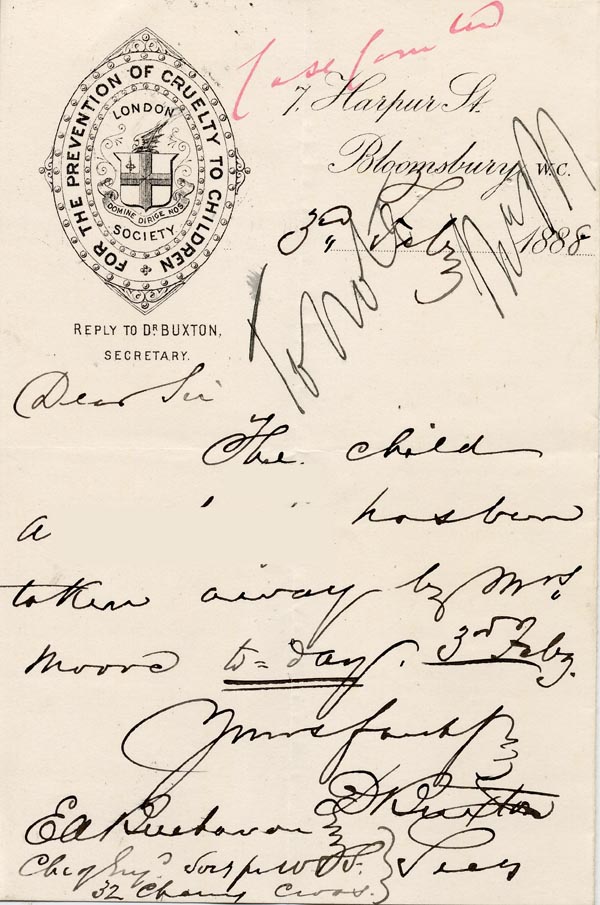 FOR THE PREVENTION OF CRUELTY TO CHILDREN
LONDON
DOMINE DIRIGE NOS
SOCIETY
REPLY TO DR BUXTON,
SECRETARY.
7, Harpur St.
Bloomsbury, W.C.
3rd Feby 1888
To Note
Dear Sir
The child
A has been
taken away by Mrs
Moore to=day. 3rd Feby.
Yours faithfy
D Buxton
Secy
Ed Buchanan
32 Charing Cross.